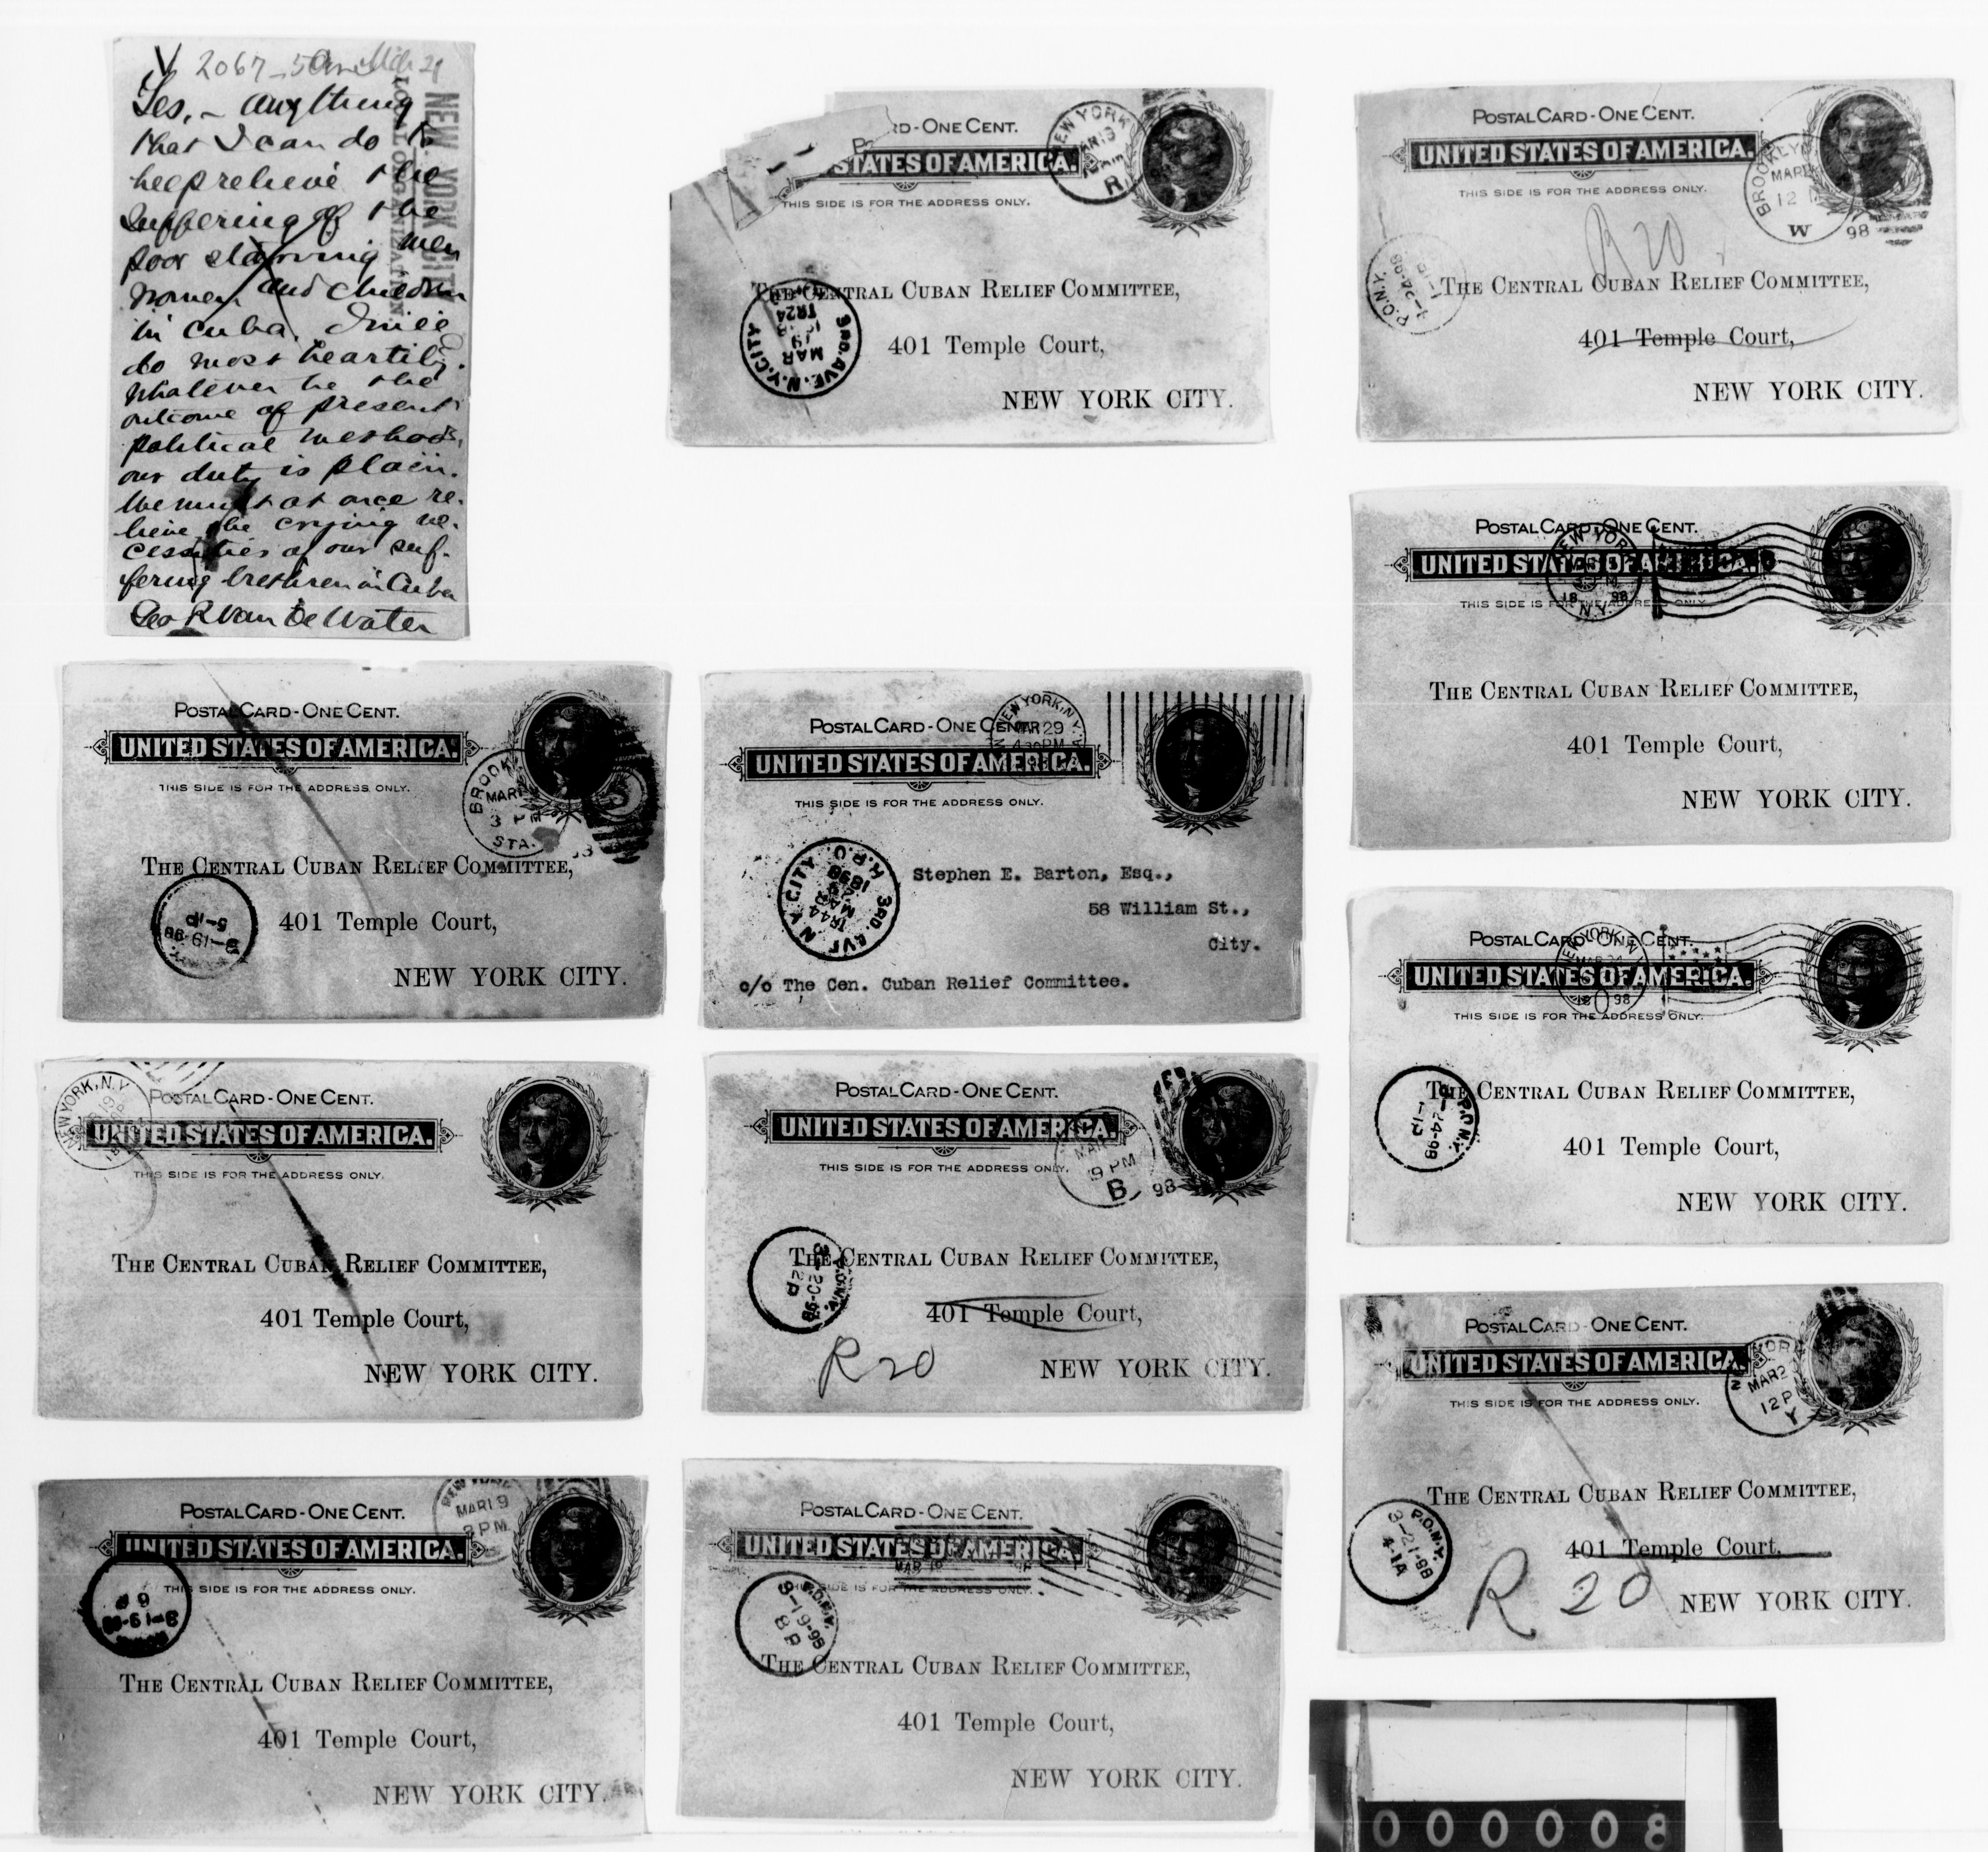 V 2067-5
NEW YORK CITY
LOCAL ORGANIZATION
Yes, - anything
that I can do to
help relieve the
suffering of the
poor starving men
women and children
in Cuba. I will
do most heartily.
Whatever be the
outcome of present
political methods,
our duty is plain.
We must at once re-
lieve the crying ne-
cessities of our suf-
fering brethren in Cuba
Geo R Van De Water
RD-ONE CENT.
STATES OF AMERICA.
THIS SIDE IS FOR THE ADDRESS ONLY.
NEW YORK
R
THE CENTRAL CUBAN RELIEF COMMITTEE,
401 Temple Court,
NEW YORK CITY.
3RD. AVE. N.Y. CITY
MAR
19
TR24
POSTAL CARD-ONE CENT.
UNITED STATES OF AMERICA.
THIS SIDE IS FOR THE ADDRESS ONLY.
BROOKLYN
MAR
12
W
98
R 20
P.O.N.Y.
THE CENTRAL CUBAN RELIEF COMMITTEE,
401 Temple Court,
NEW YORK CITY.
POSTAL CARD-ONE CENT.
UNITED STATES OF AMERICA.
THIS SIDE IS FOR THE ADDRESS ONLY.
NEW YORK
18 98
N.Y.
THE CENTRAL CUBAN RELIEF COMMITTEE,
401 Temple Court,
NEW YORK CITY.
POSTAL CARD-ONE CENT.
UNITED STATES OF AMERICA.
THIS SIDE IS FOR THE ADDRESS ONLY.
MAR
3 PM
STA.
THE CENTRAL CUBAN RELIEF COMMITTEE,
3-19-98
5-1P
401 Temple Court,
NEW YORK CITY.
POSTAL CARD-ONE CENT.
UNITED STATES OF AMERICA.
THIS SIDE IS FOR THE ADDRESS ONLY.
NEW YORK, N.Y.
MAR 29
4 30 PM
3RD. AVE. N.Y. CITY H.P.O.
TR44
MAR
29
1898
Stephen E. Barton, Esq.,
58 William St.,
City.
c/o The Cen. Cuban Relief Committee.
POSTAL CARD-ONE CENT.
UNITED STATES OF AMERICA.
THIS SIDE IS FOR THE ADDRESS ONLY.
NEW YORK, N.
18 98
P.O.N.Y.
3-24-98
THE CENTRAL CUBAN RELIEF COMMITTEE,
401 Temple Court,
NEW YORK CITY.
POSTAL CARD-ONE CENT.
UNITED STATES OF AMERICA.
THIS SIDE IS FOR THE ADDRESS ONLY.
NEW YORK, N.Y.
THE CENTRAL CUBAN RELIEF COMMITTEE,
401 Temple Court,
NEW YORK CITY.
POSTAL CARD-ONE CENT.
UNITED STATES OF AMERICA.
THIS SIDE IS FOR THE ADDRESS ONLY.
MAR
9 PM
B
98
P.O.N.Y.
3-20-98
THE CENTRAL CUBAN RELIEF COMMITTEE,
401 Temple Court,
R 20
NEW YORK CITY.
POSTAL CARD-ONE CENT.
UNITED STATES OF AMERICA.
THIS SIDE IS FOR THE ADDRESS ONLY.
MAR 2
12 P
Y
THE CENTRAL CUBAN RELIEF COMMITTEE,
P.O.N.Y.
3-21-98
4-1A
401 Temple Court.
R 20
NEW YORK CITY.
POSTAL CARD-ONE CENT.
UNITED STATES OF AMERICA.
THIS SIDE IS FOR THE ADDRESS ONLY.
NEW YORK
MAR 19
3 PM
3-19-98
6 P
THE CENTRAL CUBAN RELIEF COMMITTEE,
401 Temple Court,
NEW YORK CITY.
POSTAL CARD-ONE CENT.
UNITED STATES OF AMERICA.
THIS SIDE IS FOR THE ADDRESS ONLY.
MAR 19
3-19-98
8 P
THE CENTRAL CUBAN RELIEF COMMITTEE,
401 Temple Court,
NEW YORK CITY.
000008